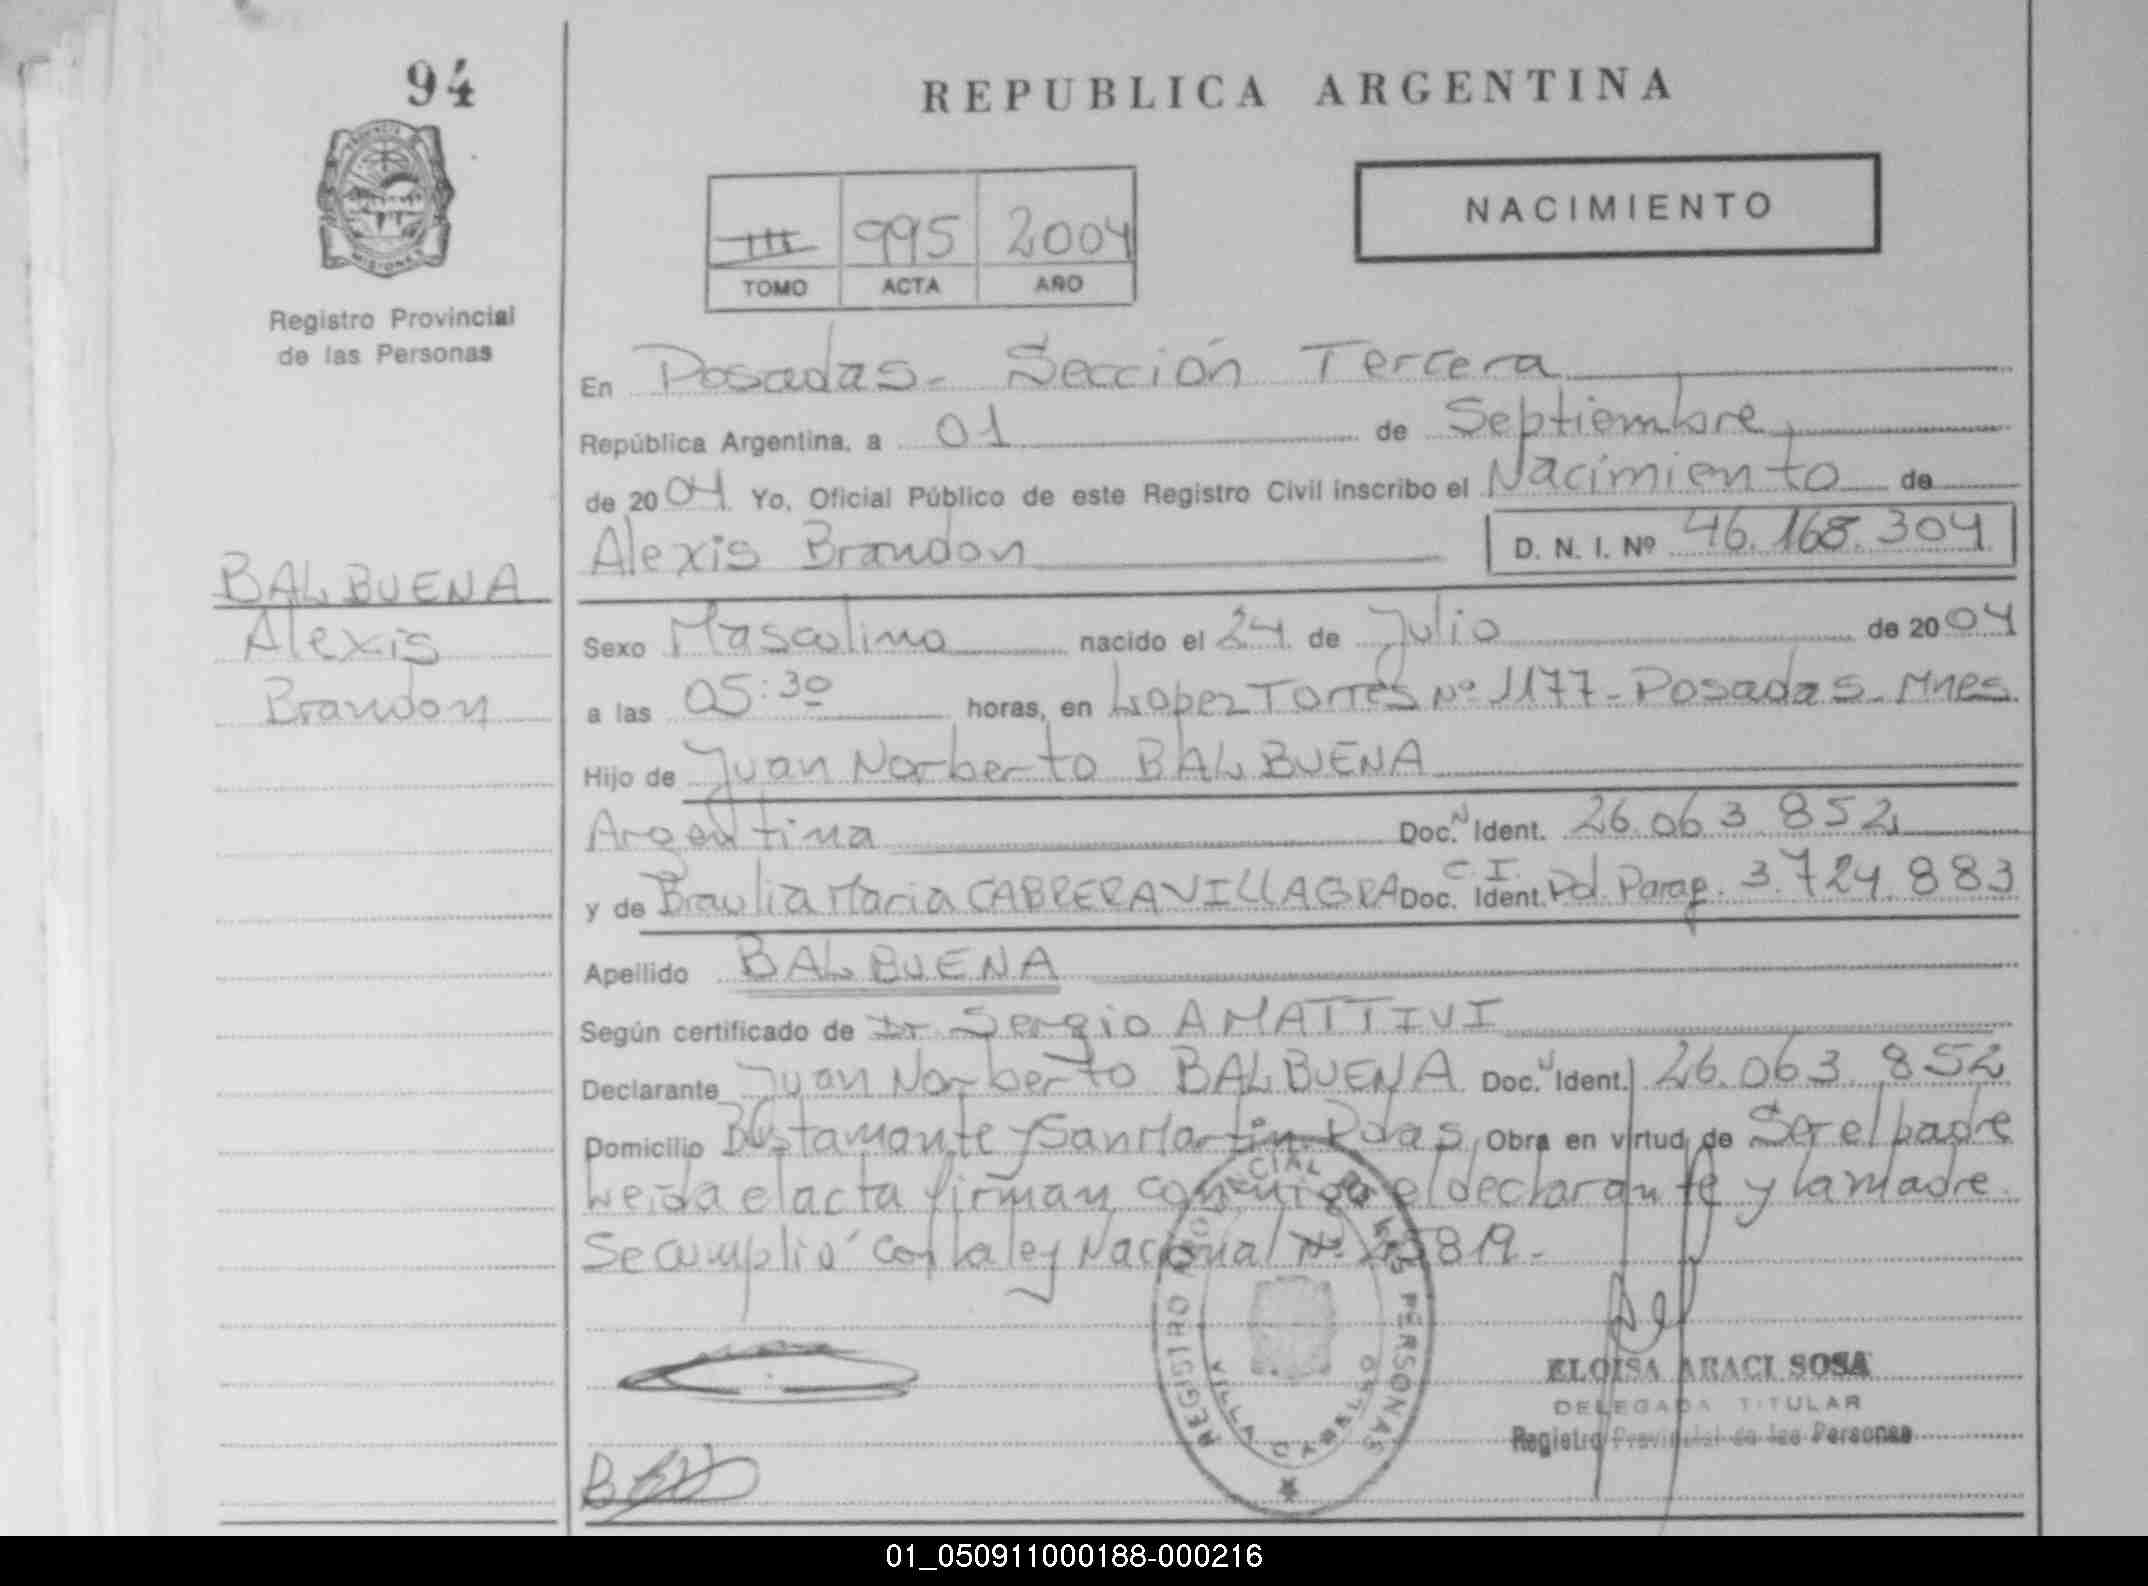 94
REPUBLICA ARGENTINA
PROVINCIA
MISIONES
NACIMIENTO
III 995 2004
TOMO ACTA AÑO
Registro Provincial
de las Personas
En Posadas - Sección Tercera
República Argentina, a 01 de Septiembre
de 2004 Yo, Oficial Público de este Registro Civil inscribo el Nacimiento de
Alexis Brandon D. N. I. Nº 46.168.304
BALBUENA
Alexis
Brandon
Sexo Masculino nacido el 24 de Julio de 2004
a las 05:30 horas, en Lopez Torres Nº 1177 - Posadas - Mnes.
Hijo de Juan Norberto BALBUENA
Argentina Doc. N Ident. 26.063.852
y de Braulia Maria CABRERA VILLAGRA Doc. C.I. Ident. Pol. Parag. 3.724.883
Apellido BALBUENA
Según certificado de Dr Sergio AMATTIVI
Declarante Juan Norberto BALBUENA Doc. N Ident. 26.063.852
Domicilio Bustamante y San Martin. Pdas, Obra en virtud de Ser el padre
Leida el acta firman conmigo el declarante y la madre.
Se cumplió con la ley Nacional Nº 25819 -
REGISTRO PROVINCIAL DE LAS PERSONAS
VILLA CABELLO
ELOISA ARACI SOSA
DELEGADA TITULAR
Registro Provincial de las Personas
01_050911000188-000216